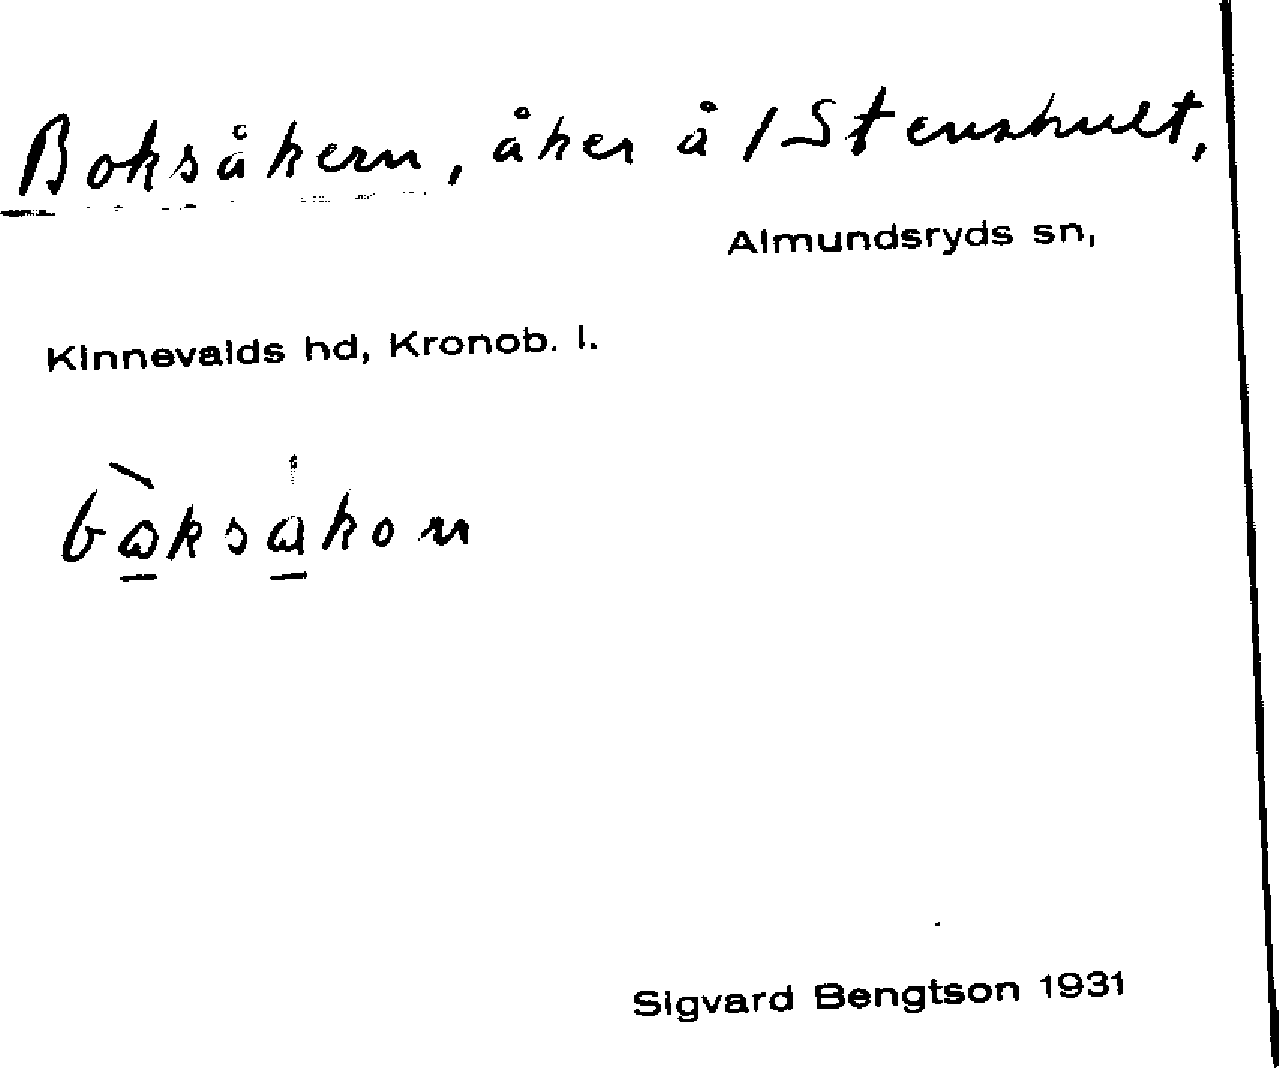 Boksåkern, åker å / Stenshult,
Almundsryds sn,
Kinnevalds hd, Kronob. l.
Sigvard Bengtson 1931